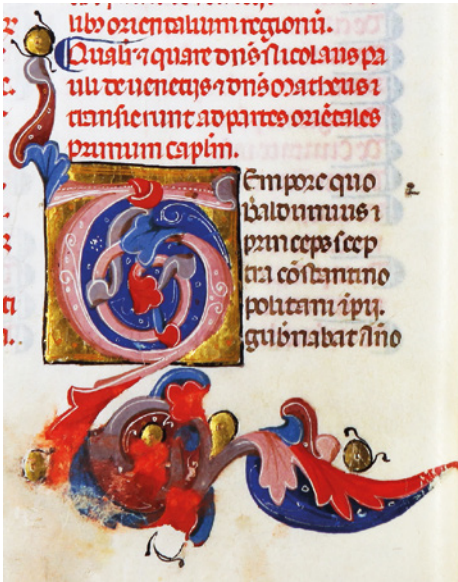 libꝰ orientalium regionū.
Qualit̄ ⁊ quare dn̄s Nicolaus pa
uli de uenetijs ⁊ dn̄s Matheus ⁊
transierunt ad partes oriētales
primum capl̄m.
Tempore quo
Balduinus ⁊
princeps scep
tra cōstantino
politani īpij.
gub̄nabat Año